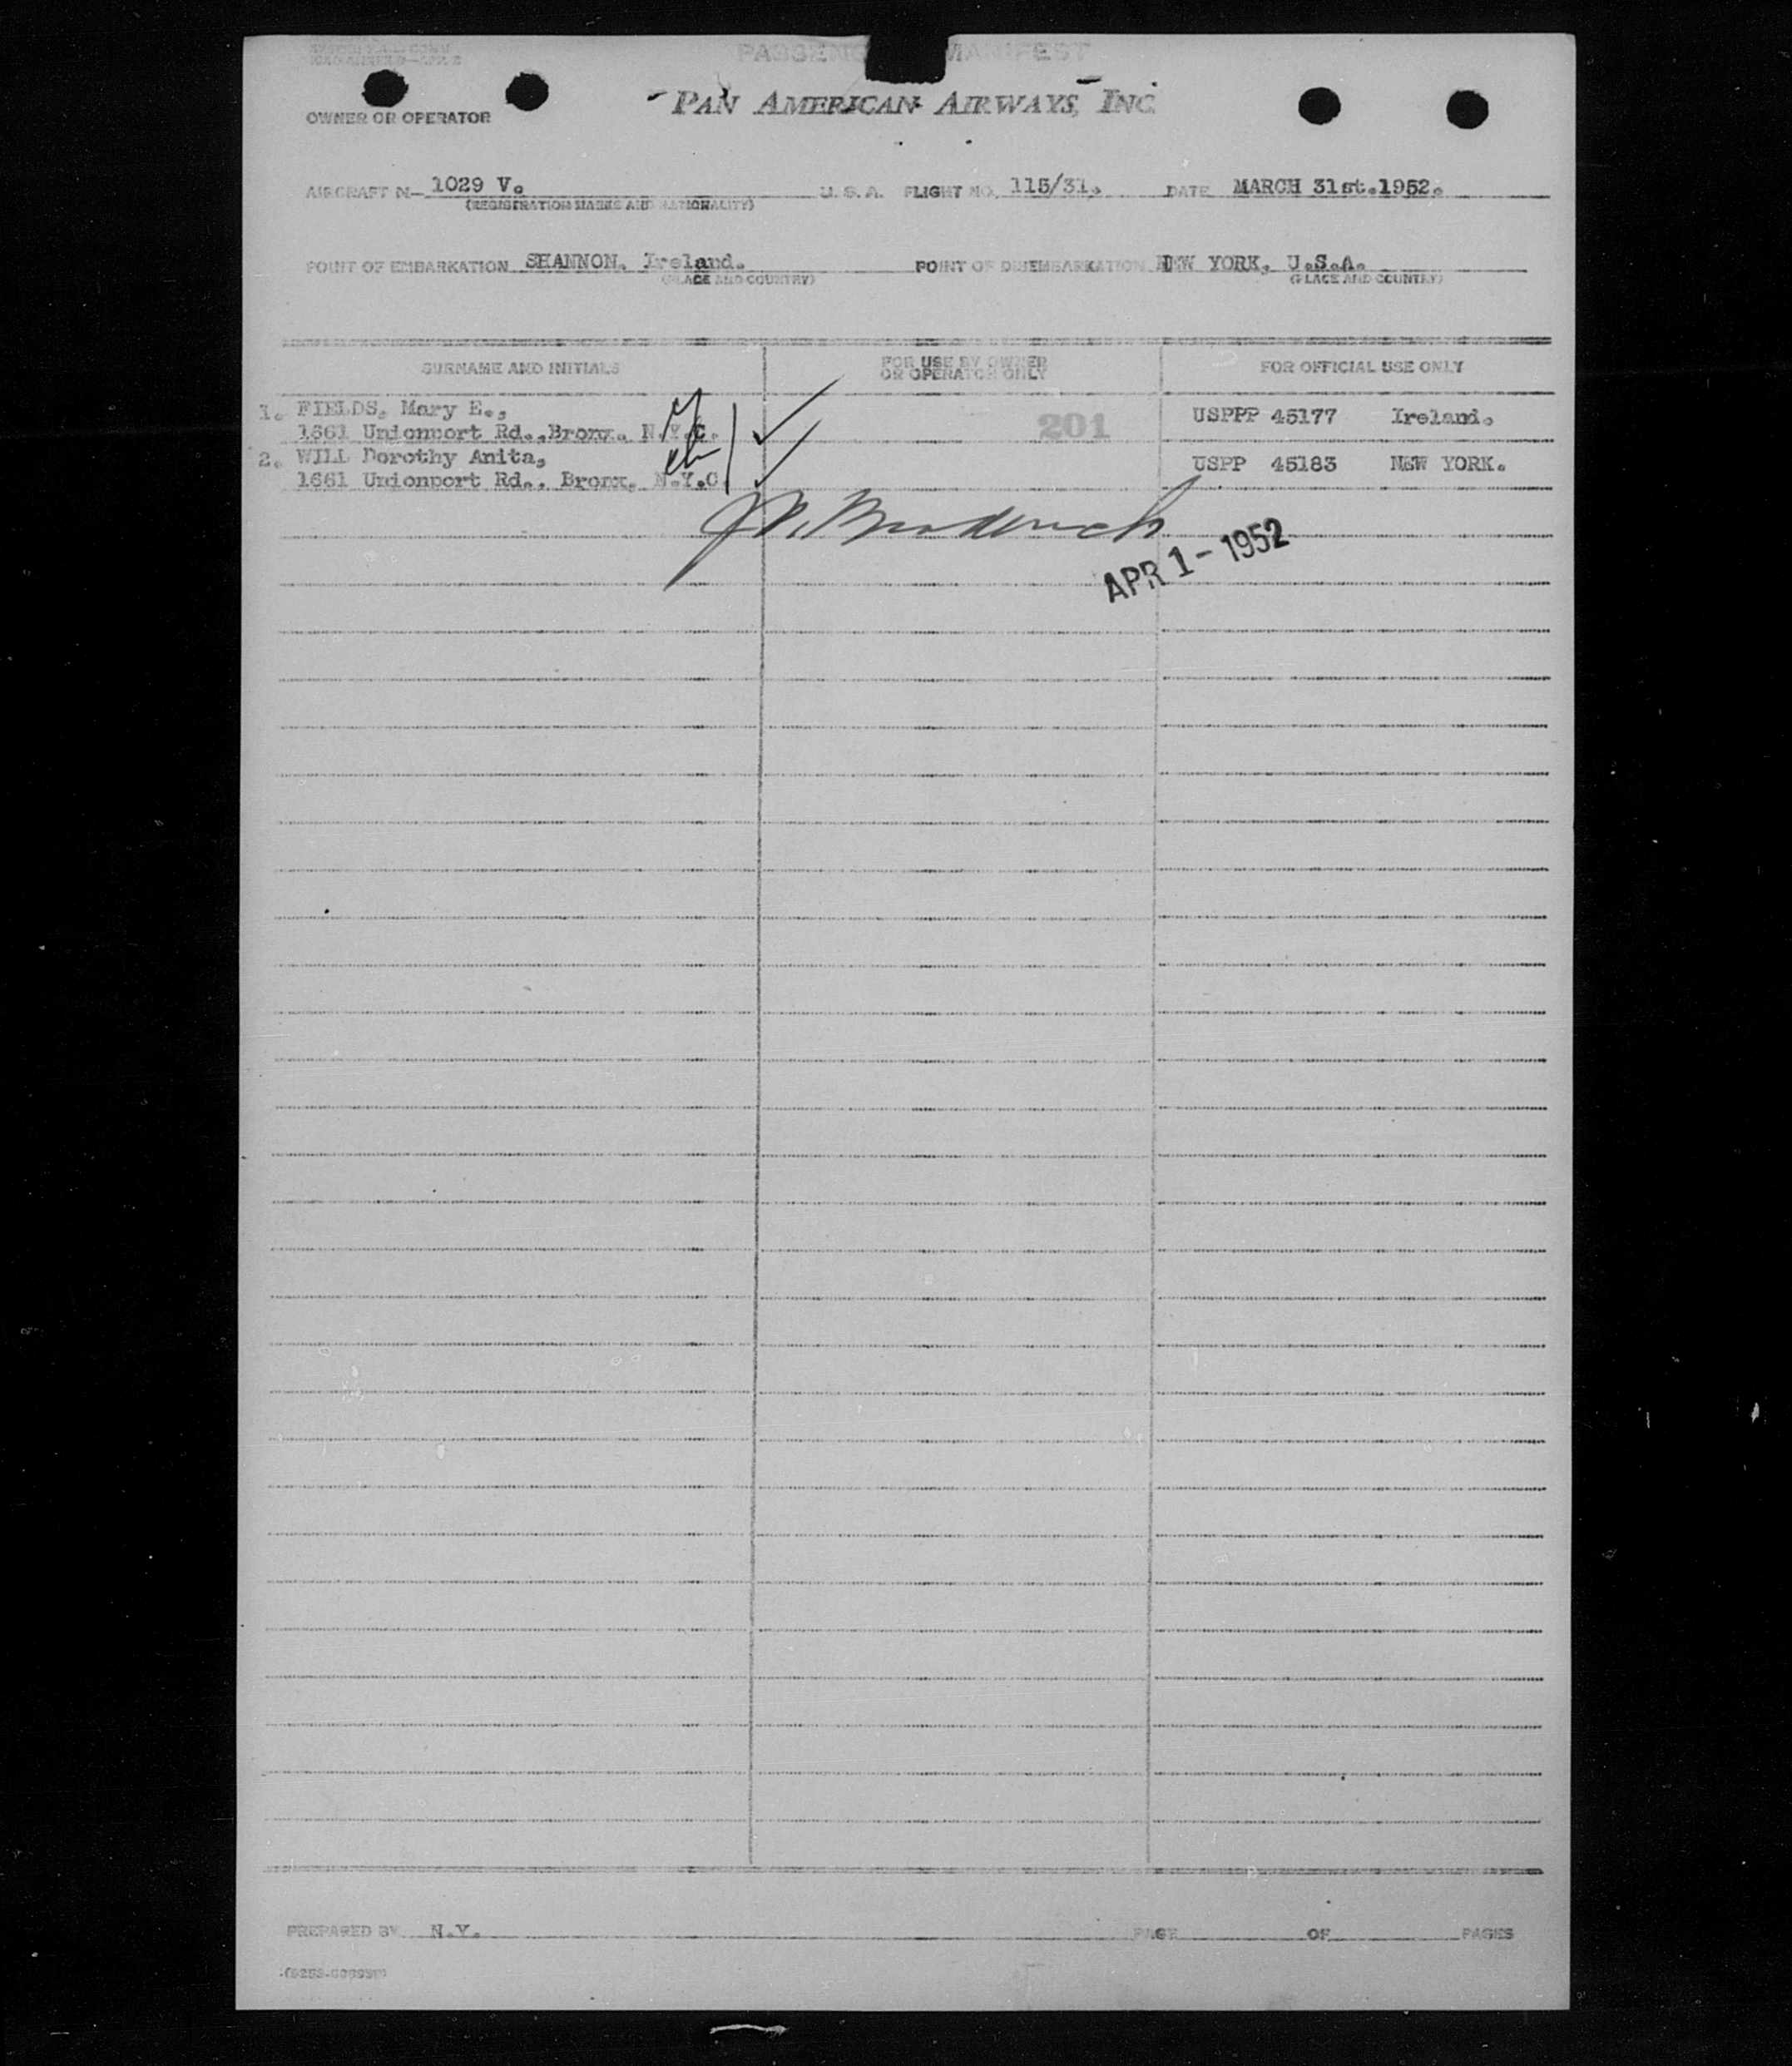 PASSENG MANIFEST
OWNER OR OPERATOR
PAN AMERICAN AIRWAYS, INC
AIRCRAFT N— 1029 V. U. S. A. FLIGHT NO. 115/31. DATE MARCH 31st.1952.
(REGISTRATION MARKS AND NATIONALITY)
POINT OF EMBARKATION SHANNON. Ireland. POINT OF DISEMBARKATION NEW YORK, U.S.A.
(PLACE AND COUNTRY) (PLACE AND COUNTRY)
SURNAME AND INITIALS FOR USE BY OWNER OR OPERATOR ONLY FOR OFFICIAL USE ONLY
1. FIELDS, Mary E., 201 USPPP 45177 Ireland.
1661 Unionport Rd.,Bronx. N.Y.C.
2. WILL Dorothy Anita, USPP 45183 NEW YORK.
1661 Unionport Rd., Bronx. N.Y.C.
APR 1 - 1952
PREPARED BY N.Y. PAGE OF PAGES